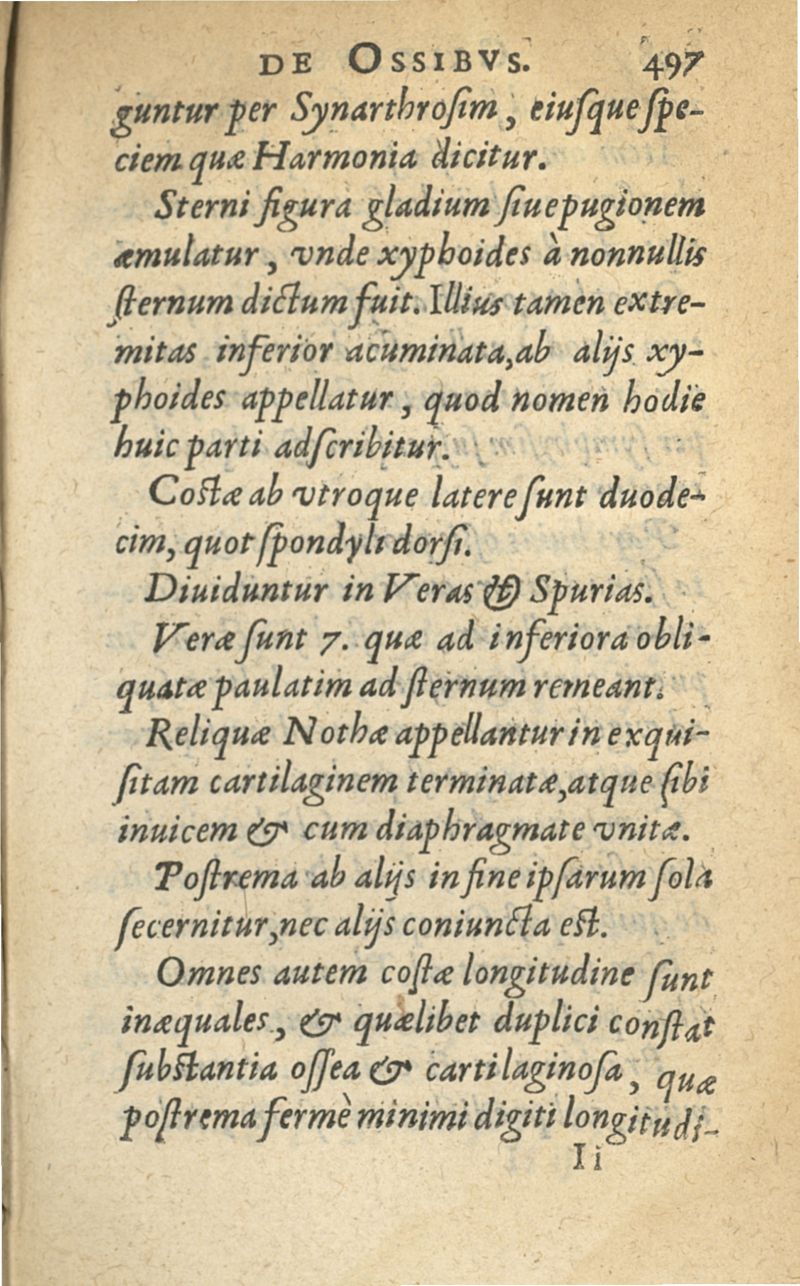 DE OSSIBVS. 497
guntur per Synarthroſim, eiuſque ſpe-
ciem quæ Harmonia dicitur.
Sterni figura gladium ſiue pugionem
æmulatur, vnde xyphoides à nonnullis
ſternum dictum fuit. Illius tamen extre-
mitas inferior acuminata, ab alijs xy-
phoides appellatur, quod nomen hodie
huic parti adſcribitur.
Coſtæ ab vtroque latere ſunt duode-
cim, quot ſpondyli dorſi.
Diuiduntur in Veras & Spurias.
Veræ ſunt 7. quæ ad inferiora obli-
quatæ paulatim ad ſternum remeant.
Reliquæ Nothæ appellantur in exqui-
ſitam cartilaginem terminatæ, atque ſibi
inuicem & cum diaphragmate vnitæ.
Poſtrema ab alijs in fine ipſarum ſola
ſecernitur, nec alijs coniuncta eſt.
Omnes autem coſtæ longitudine ſunt
inæquales, & quælibet duplici conſtat
ſubſtantia oſſea & cartilaginoſa, quæ
poſtrema fermè minimi digiti longitudi-
Ii